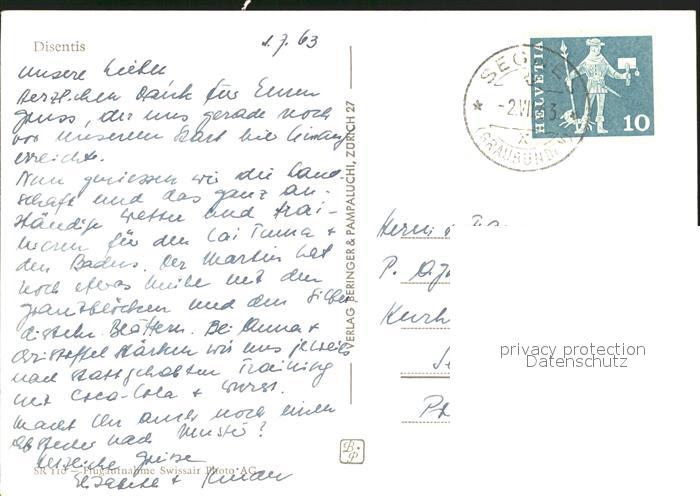 Disentis
1.7.63
Unsere Lieben
Herzlichen Dank für Euren
Gruss, der uns gerade noch
vor unserem Start hier hinauf
erreichte.
Nun geniessen wir die Land-
schaft und das ganz an-
ständige Wetter und trai-
nieren für den Lai Tuma +
den Badus. Der Martin hat
noch etwas Mühe mit den
Granitblöcken und den Silber-
disteln-Blättern. Bei Anna +
Christoffel stärken wir uns jeweils
nach statt gehabtem Training
mit Coca-Cola + Wurst.
Macht Ihr auch noch einen
Abstecher nach Müstér?
Herzliche Grüsse
Elisabeth + Kinder
SR 116 — Flugaufnahme Swissair Photo AG
VERLAG BERINGER & PAMPALUCHI, ZÜRICH 27
B. P
HELVETIA
10
-2.VII
(GRAUBÜNDEN)
privacy protection
Datenschutz